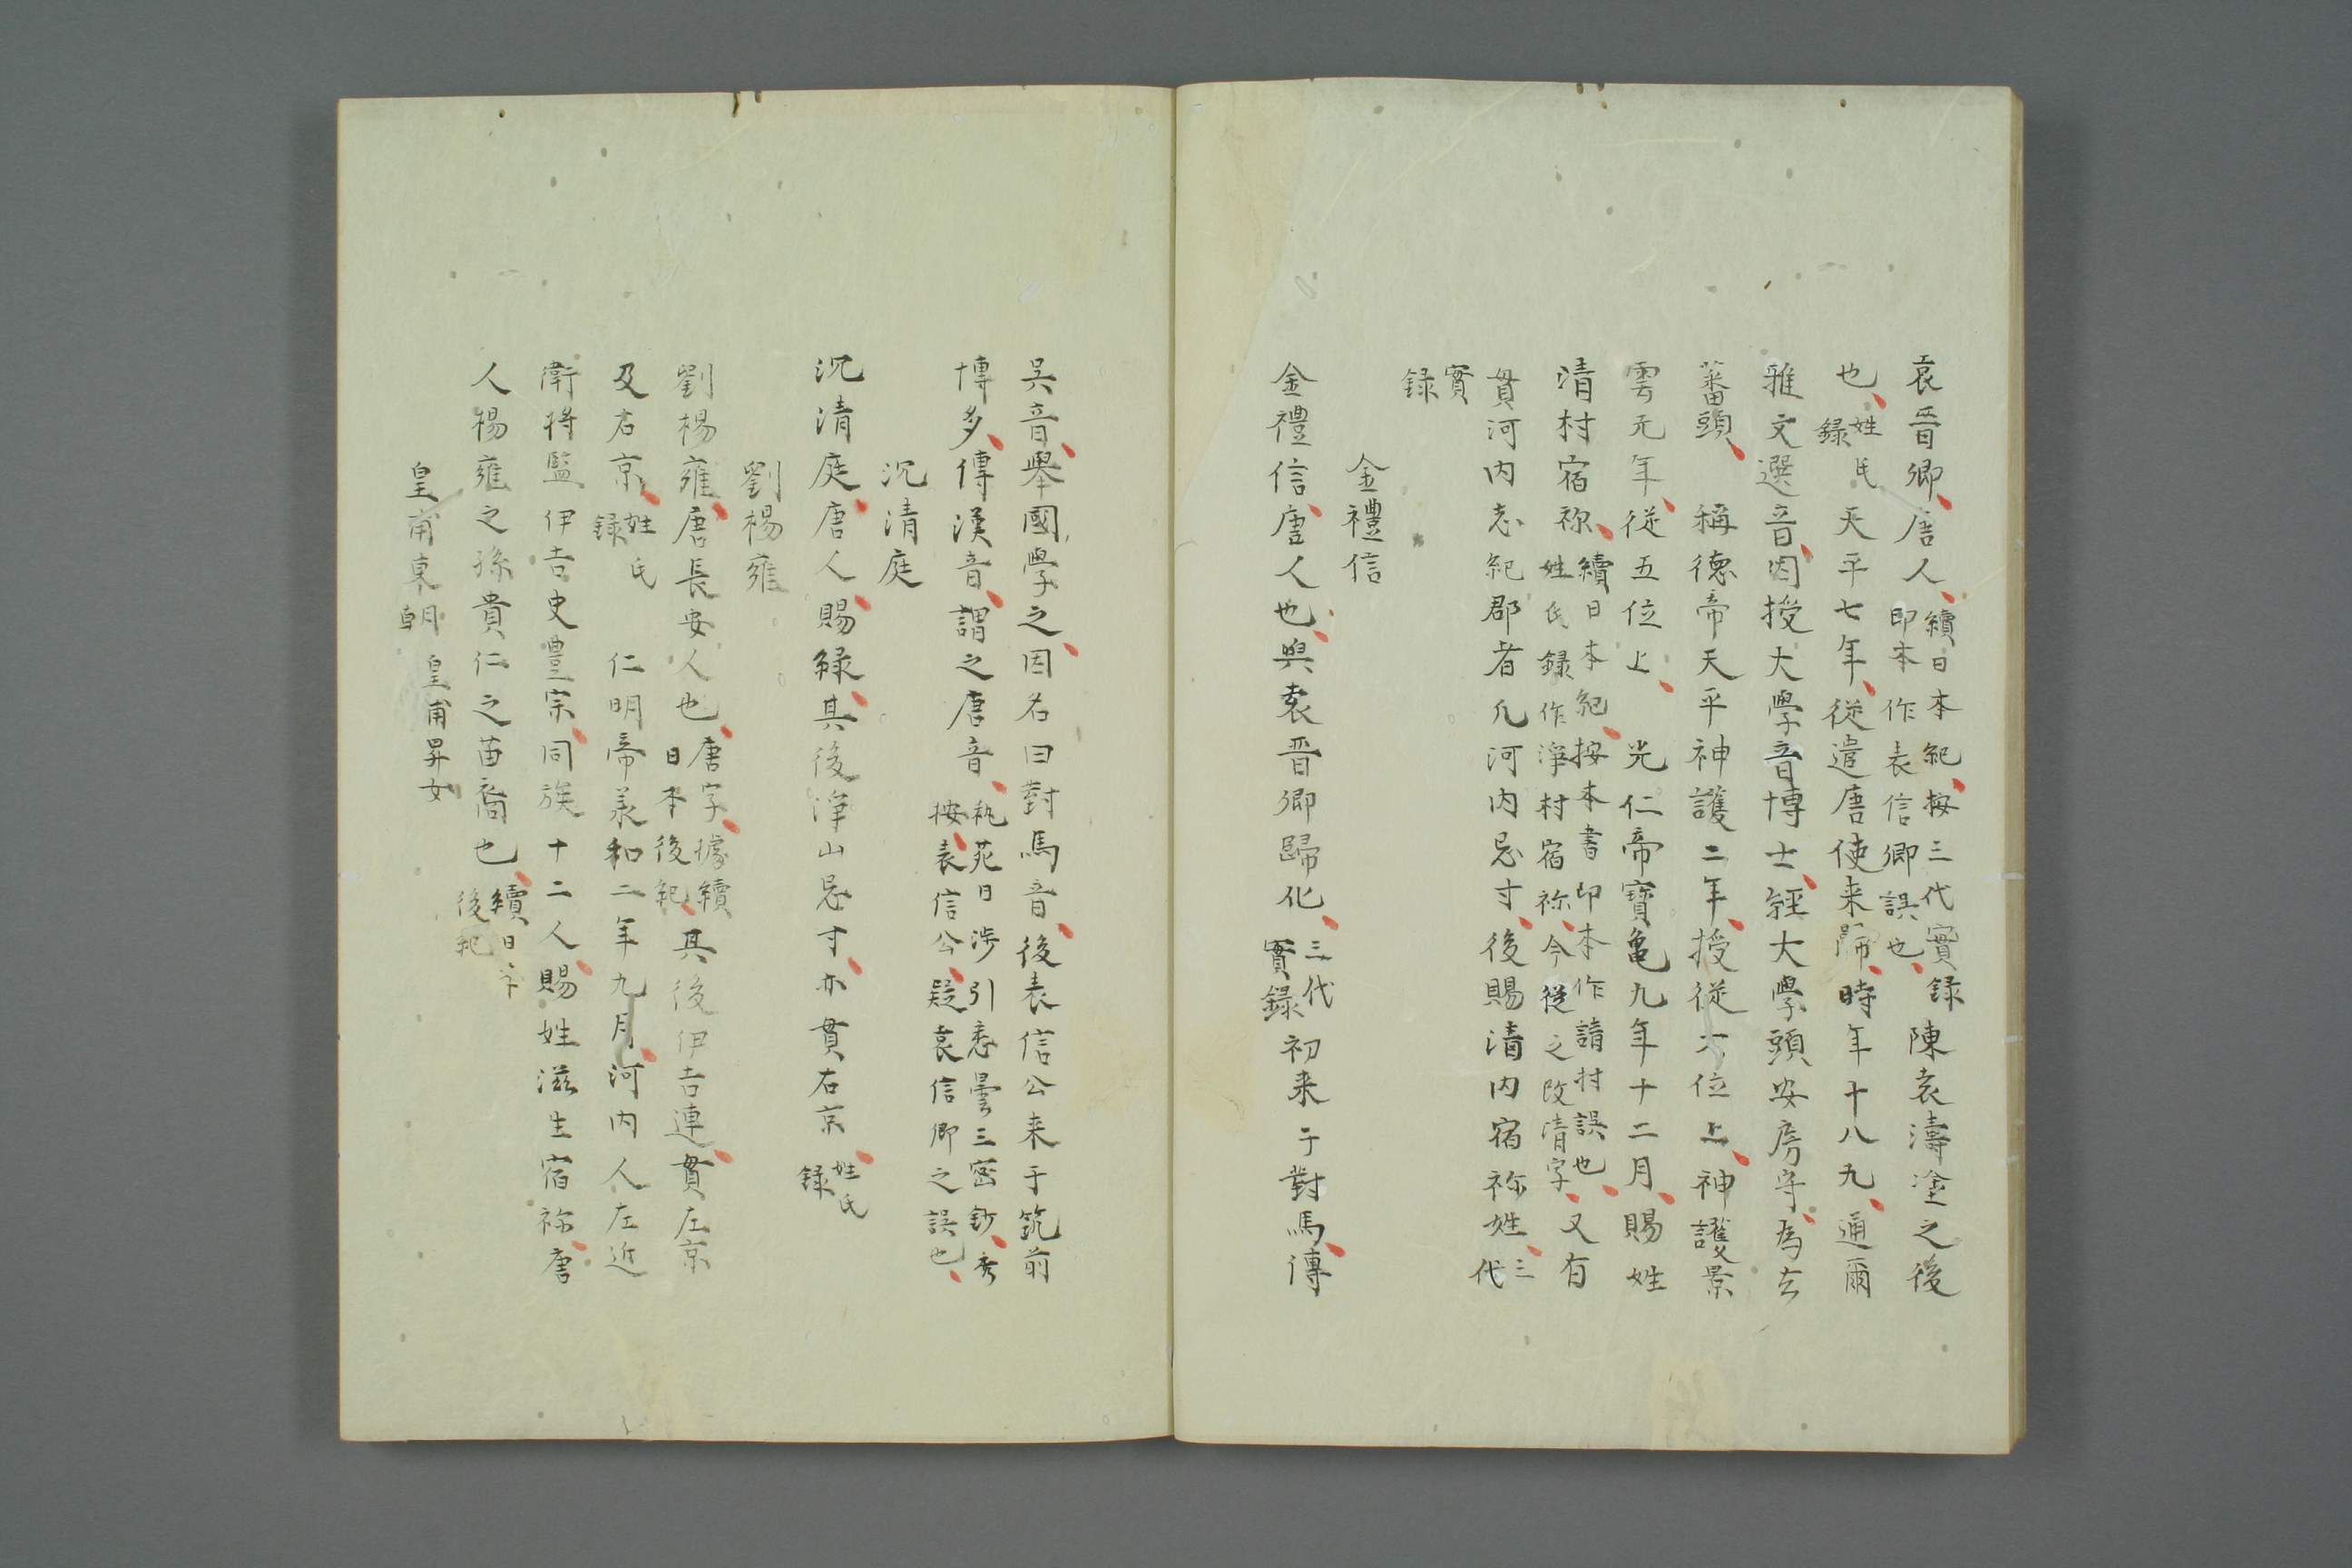 袁晋卿唐人續日本紀按三代實録即本作表信卿誤也陳袁濤塗之後
也姓氏録天平七年從遣唐使来歸時年十八九通爾
雅文選音因授大學音博士經大學頭安房守為玄
蕃頭稱德帝天平神護二年授從六位上神護景
雲元年從五位上光仁帝寶亀九年十二月賜姓
清村宿祢續日本紀按本書印本作請村誤也姓氏録作淨村宿祢今從之改清字又有
貫河内志紀郡者凡河内忌寸後賜清内宿祢姓三代
實録
金禮信
金禮信唐人也與袁晋卿歸化三代實録初来于對馬傳
吳音舉國學之因名曰對馬音後表信公来于筑前
博多傳漢音謂之唐音執苑日渉引悉曇三密鈔考按表信公疑袁信卿之誤也
沉清庭
沉清庭唐人賜緑其後淨山忌寸亦貫右京姓氏録
劉楊雍
劉楊雍唐長安人也唐字據續日本後紀其後伊吉連貫左京
及右京姓氏録仁明帝羕和二年九月河内人左近
衛将監伊吉史豊宗同族十二人賜姓滋生宿祢唐
人楊雍之孫貴仁之苗裔也續日本後紀
皇甫東朝 皇甫昇女